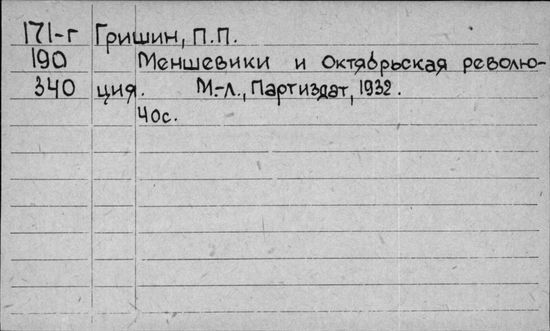 171-г Гришин, П.П.
190 Меншевики и Октябрьская револю-
340 ция. М.-Л., Партиздат, 1932.
40с.